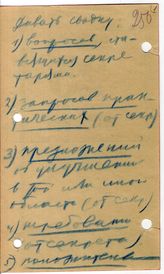 Давать сводку:
1) вопросов, ста-
вящихся секре
тарями.
2) запросов прак-
тических (от секр)
3) предложений
об улучшении
в той или иной
области (от секр)
4) требований
от секретаря
5)